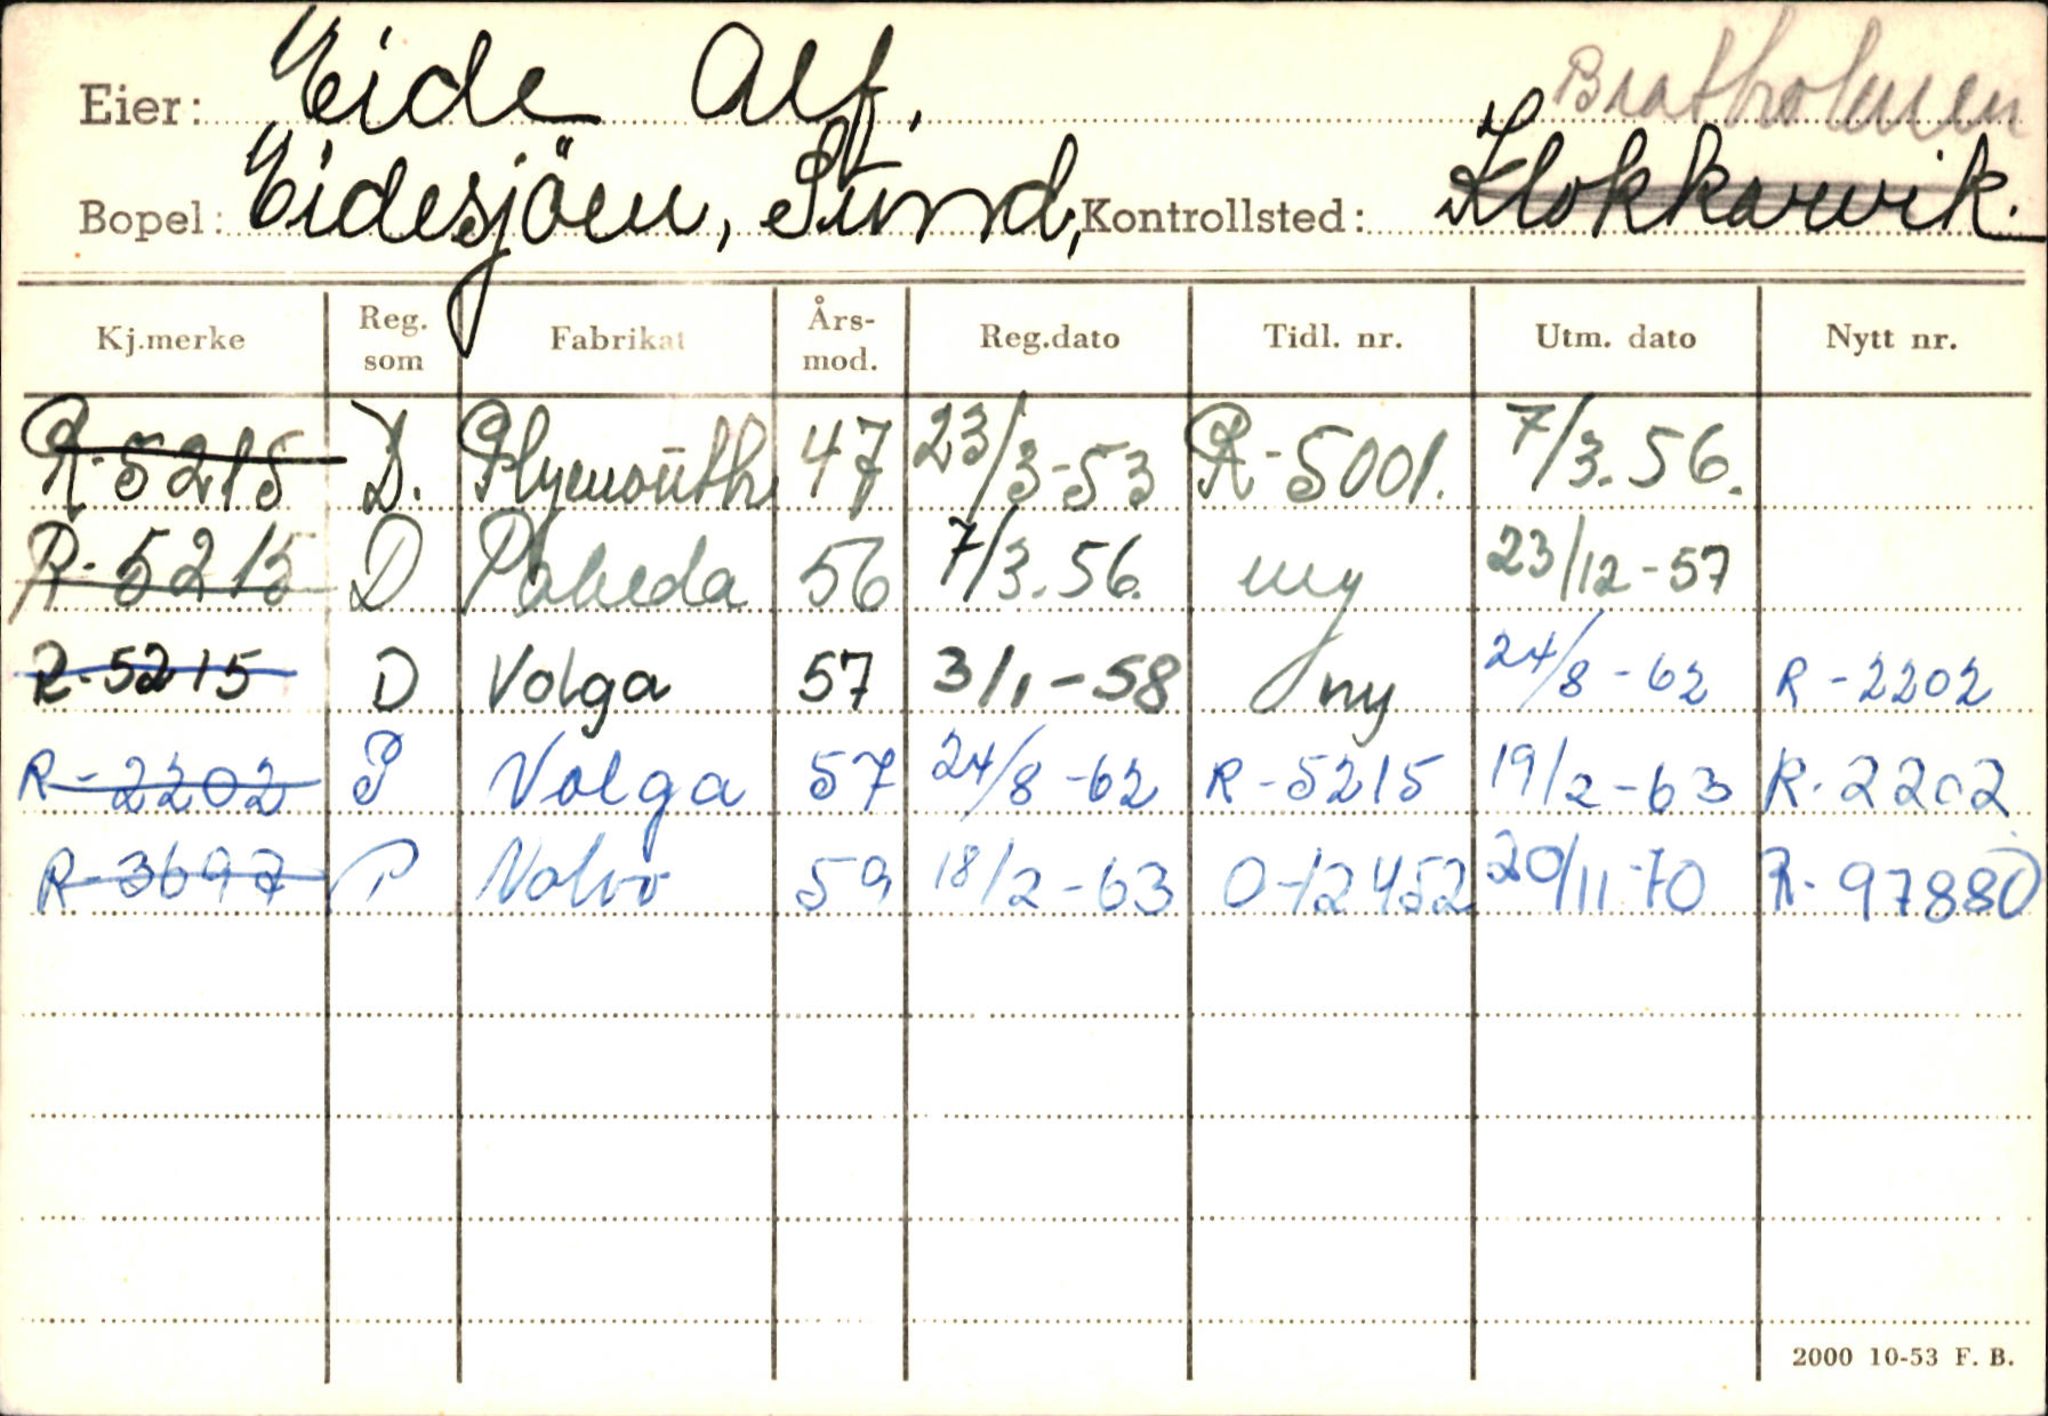 Brattholmen
Eier: Eide Alf.
Bopel: Eidesjöen, Sund, Kontrollsted: Klokkarvik.
Kj.merke Reg. som Fabrikat Års-mod. Reg.dato Tidl. nr. Utm. dato Nytt nr.
R-5215 D. Plymouth 47 23/3-53 R-5001. 7/3.56.
R-5215 D Pobeda 56 7/3.56. ny 23/12-57
R-5215 D Volga 57 3/1-58 ny 24/8-62 R-2202
R-2202 P Volga 57 24/8-62 R-5215 19/2-63 R-2202
R-3697 P Volvo 59 18/2-63 O-12452 20/11-70 R-97880
2000 10-53 F. B.